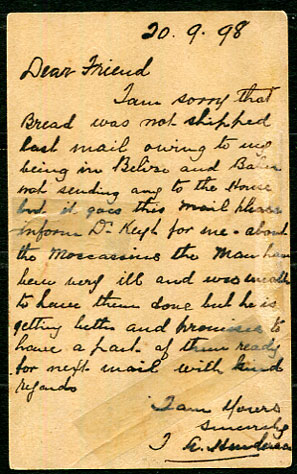 20.9.98
Dear Friend
I am sorry that
Bread was not shipped
last mail owing to my
being in Belize and Baker
not sending any to the House
but it goes this mail Please
inform Dr Keyt for me - about
the Moccassins the Man has
been very ill and was unable
to have them done but he is
getting better and promises to
have a part of them ready
for next mail with kind
regards
I am Yours
Sincerely
A. Henderson